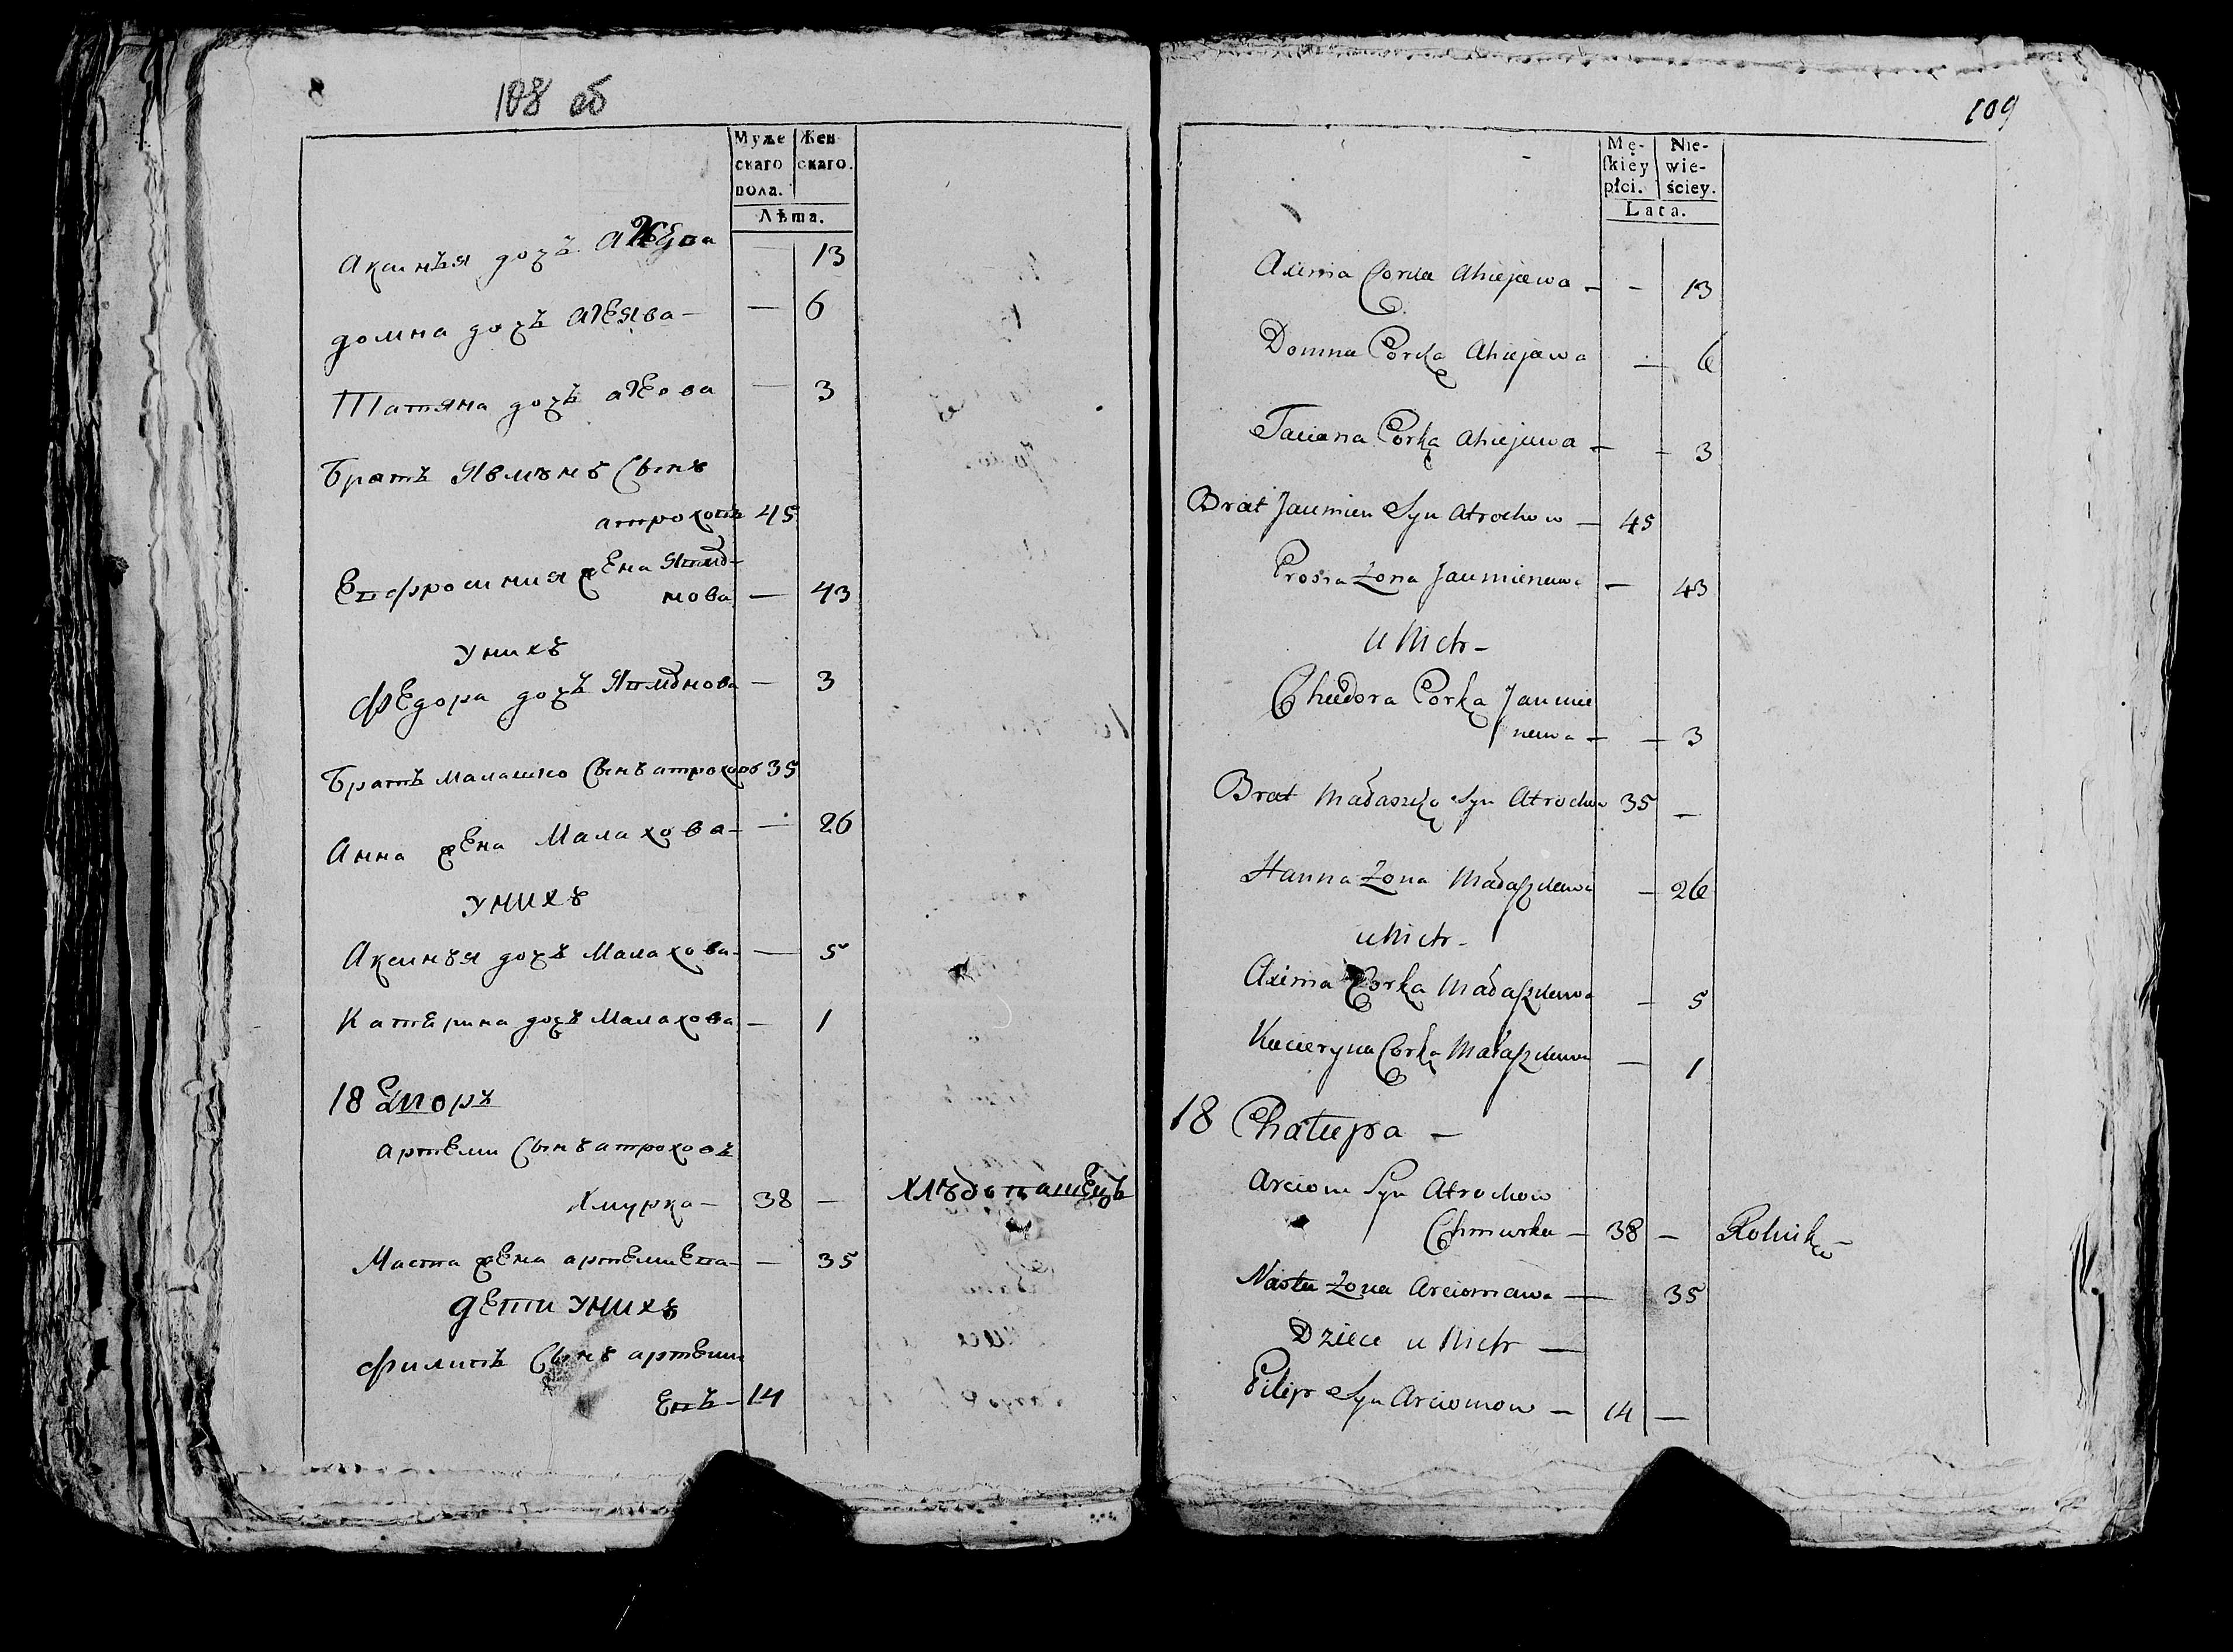 108 об
Муже
скаго
пола.
Жен
скаго.
Лѣта.
Аксинья дочь
13
домна дочь
— 6
Татяна дочь
— 3
братъ Явмѣнъ Сынъ
атроховъ 45
Евфросиния жена Явмѣ-
нова — 43
у нихъ
Федора дочь Явмѣнова — 3
братъ малашко Сынъ атроховъ 35
Анна жена Малахова — — 26
у нихъ
Аксинья дочь Малахова — — 5
Катерина дочь Малахова — 1
18 Дворъ
артеми Сынъ атроховъ
Хмурка — 38 — хлѣбопашецъ
Наста жена артемиева — — 35
дети у нихъ
Филипъ Сынъ артеми
евъ — 14
109
Mę-
ſkiey
płci.
Nie-
wie-
ściey.
Lata.
Axinia Corka Ahiejewa — — 13
Domna Corka Ahiejewa — 6
Taciana Corka Ahiejewa — — 3
Brat Jaumien Syn Atrochow — 45
Prosia Żona Jaumienowa — 43
u Nich —
Chwedora Corka Jaumie
nowa — — 3
Brat Małaszko Syn Atrochow 35 —
Hanna Żona Małaszkowa — 26
u Nich —
Axinia Corka Małaszkowa — 5
Kacieryna Corka Małaszkowa — 1
18 Chałupa —
Arciom Syn Atrochow
Chmurka — 38 — Rolnik —
Nasta Żona Arciomowa — 35
Dzieci u Nich —
Filip Syn Arciomow — 14 —